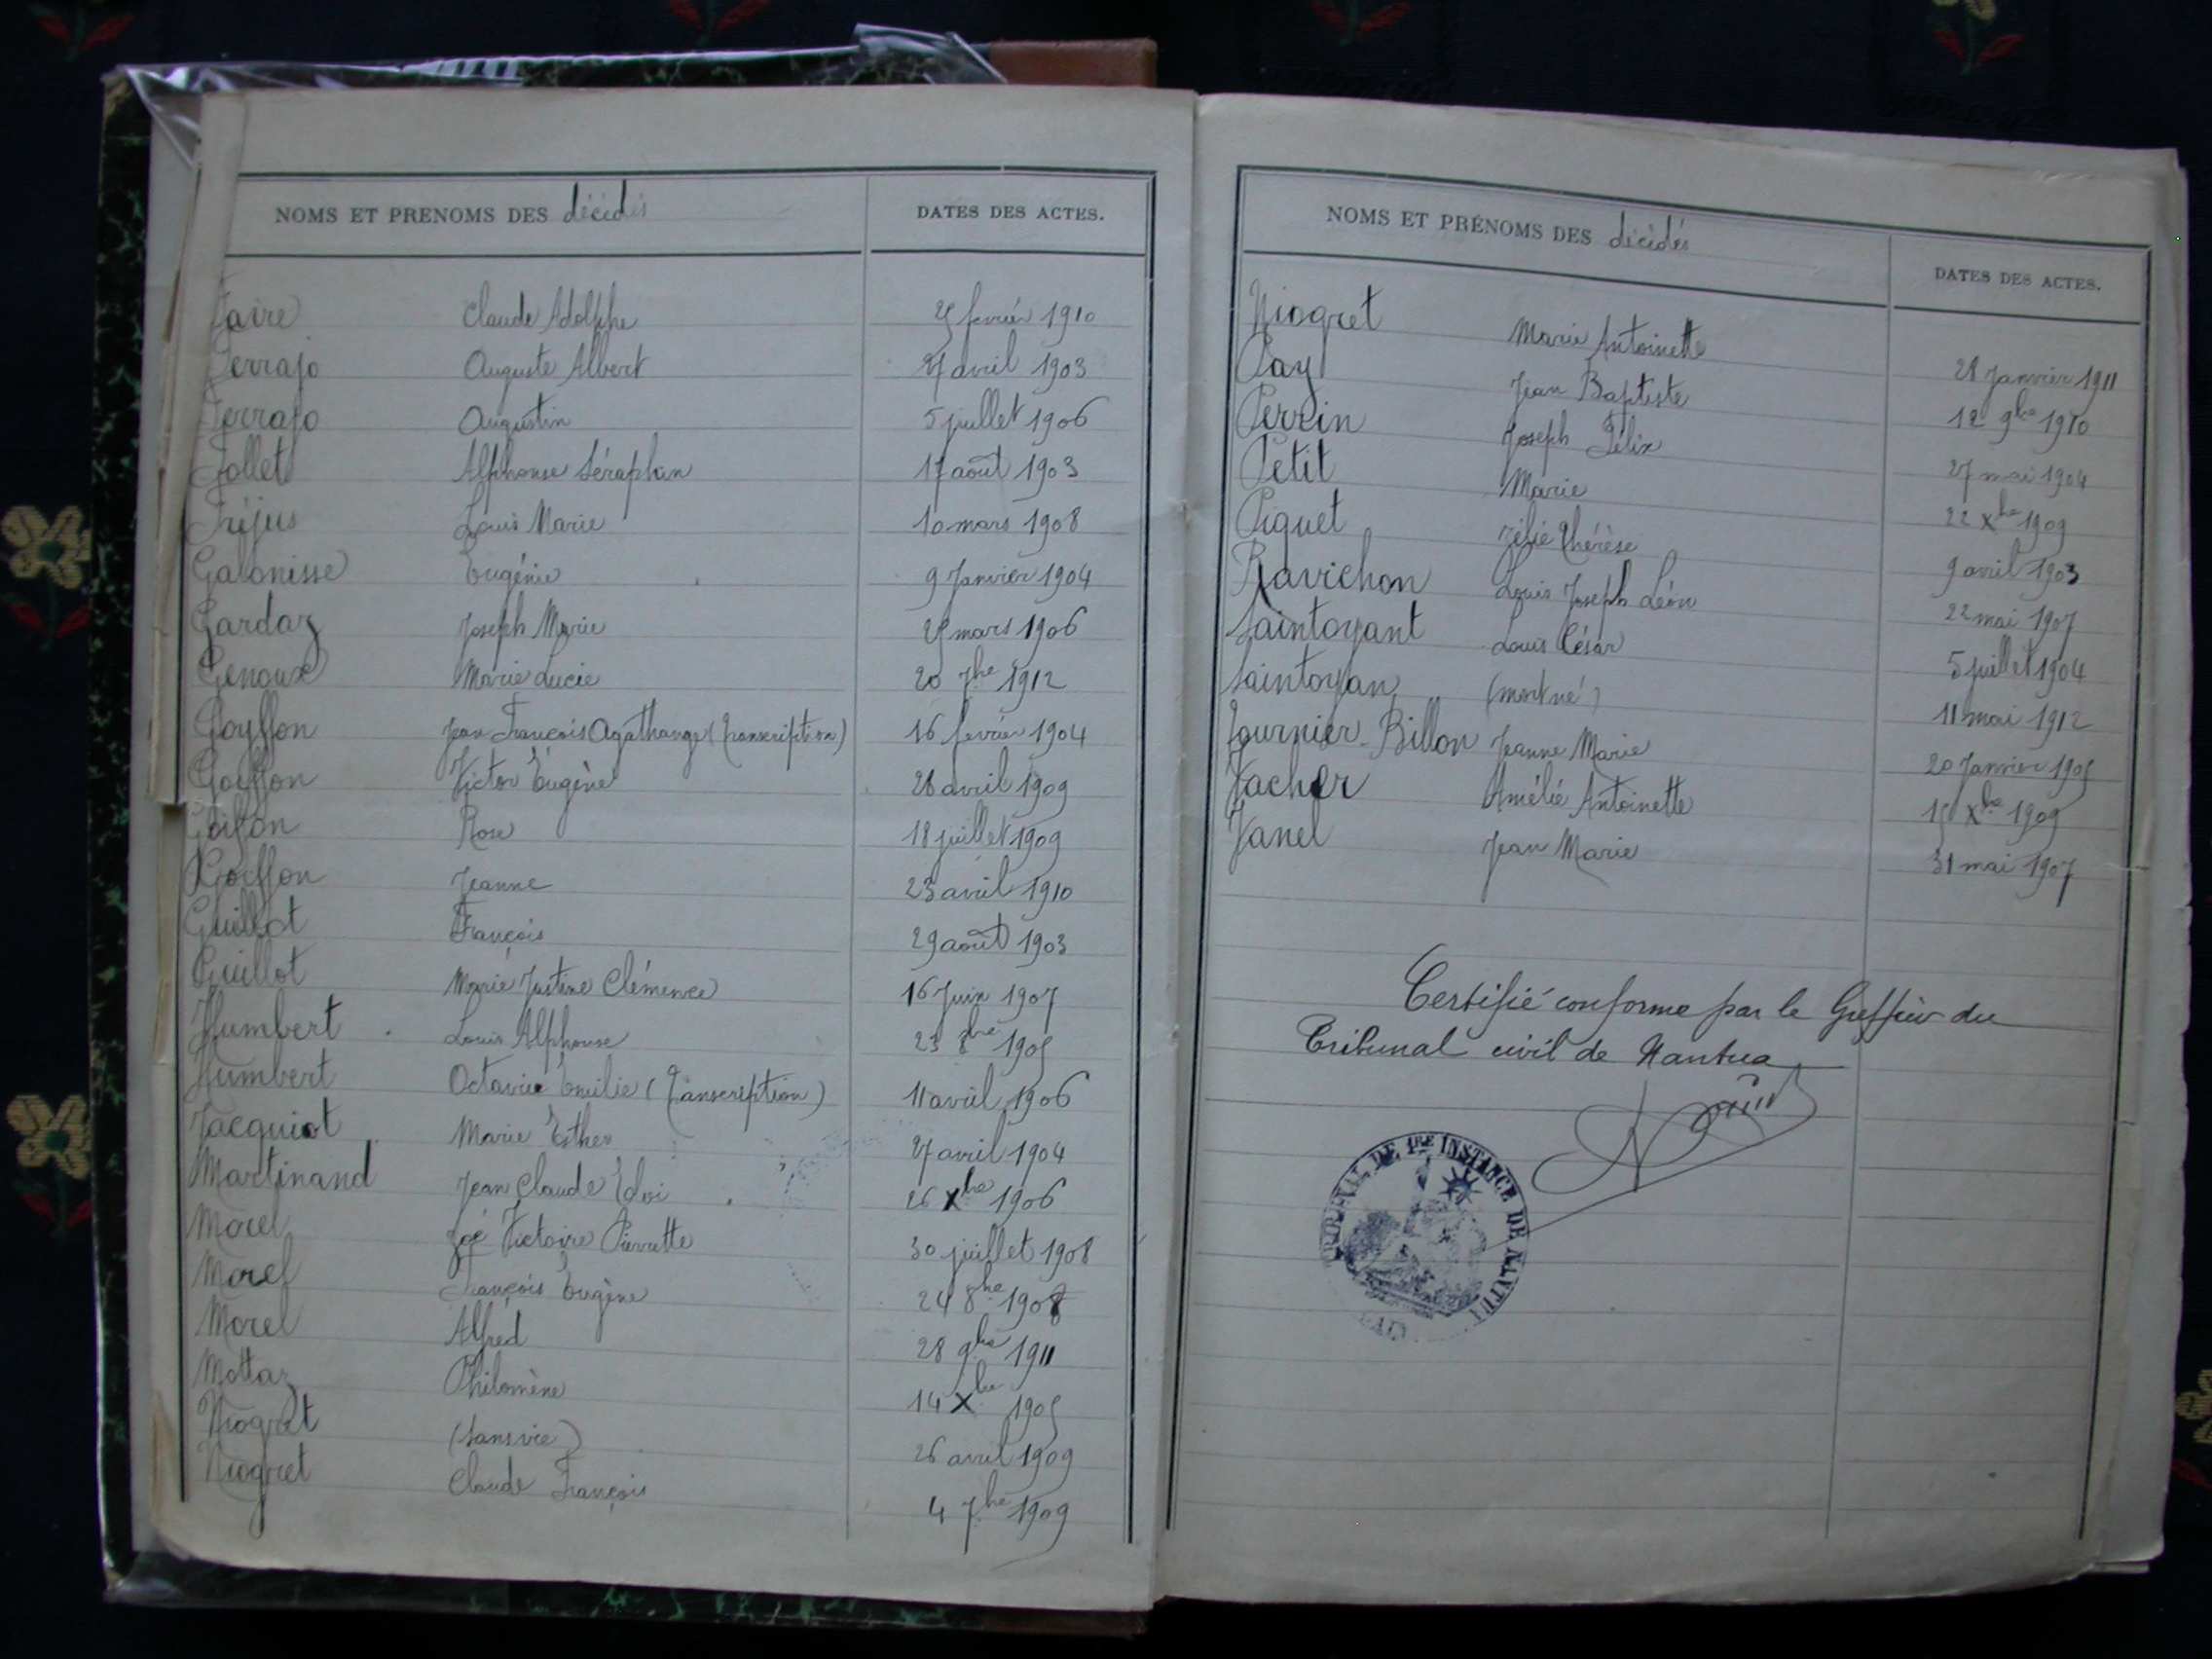 NOMS ET PRENOMS DES décédés DATES DES ACTES.
Faire Claude Adolphe 25 février 1910
Ferrajo Auguste Albert 27 avril 1903
Ferrajo Augustin 5 juillet 1906
Follet Alphonse Séraphin 17 août 1903
Fréjus Louis Marie 10 mars 1908
Eugénie 9 Janvier 1904
Gardaz Joseph Marie 25 mars 1906
Genoux Marie Lucie 20 7bre 1912
Goyffon Jean François Agathange (Transcription) 16 février 1904
Goiffon Victor Eugène 28 avril 1909
Goifon Rose 18 juillet 1909
Goiffon Jeanne 23 avril 1910
Guillot François 29 août 1903
Guillot Marie Justine Clémence 16 Juin 1907
Humbert Louis Alphonse 23 8bre 1905
Humbert Octavie Emilie (Transcription) 11 avril 1906
Jacquiot Marie Esther 27 avril 1904
Martinand Jean Claude Eloi 26 Xbre 1906
Morel Zoé Victoire Pierrette 30 juillet 1908
Morel François Eugène 24 8bre 1908
Morel Alfred 28 9bre 1911
Mottaz Philomène 14 Xbre 1905
Niogret (sans vie) 26 avril 1909
Niogret Claude François 4 7bre 1909
NOMS ET PRÉNOMS DES décédés DATES DES ACTES.
Niogret Marie Antoinette 28 Janvier 1911
Pay Jean Baptiste 12 9bre 1910
Perrin Joseph Félix 27 mai 1904
Petit Marie 22 Xbre 1909
Piquet Zélie Thérèse 9 avril 1903
Ravichon Louis Joseph Léon 22 mai 1907
Saintoyant Louis César 5 juillet 1904
Saintoyan (mort né) 11 mai 1912
Tournier-Billon Jeanne Marie 20 Janvier 1905
Vacher Amélie Antoinette 15 Xbre 1909
Vanel Jean Marie 31 mai 1907
Certifié conforme par le Greffier du
Tribunal civil de Nantua
TRIBUNAL DE 1RE INSTANCE DE NANTUA